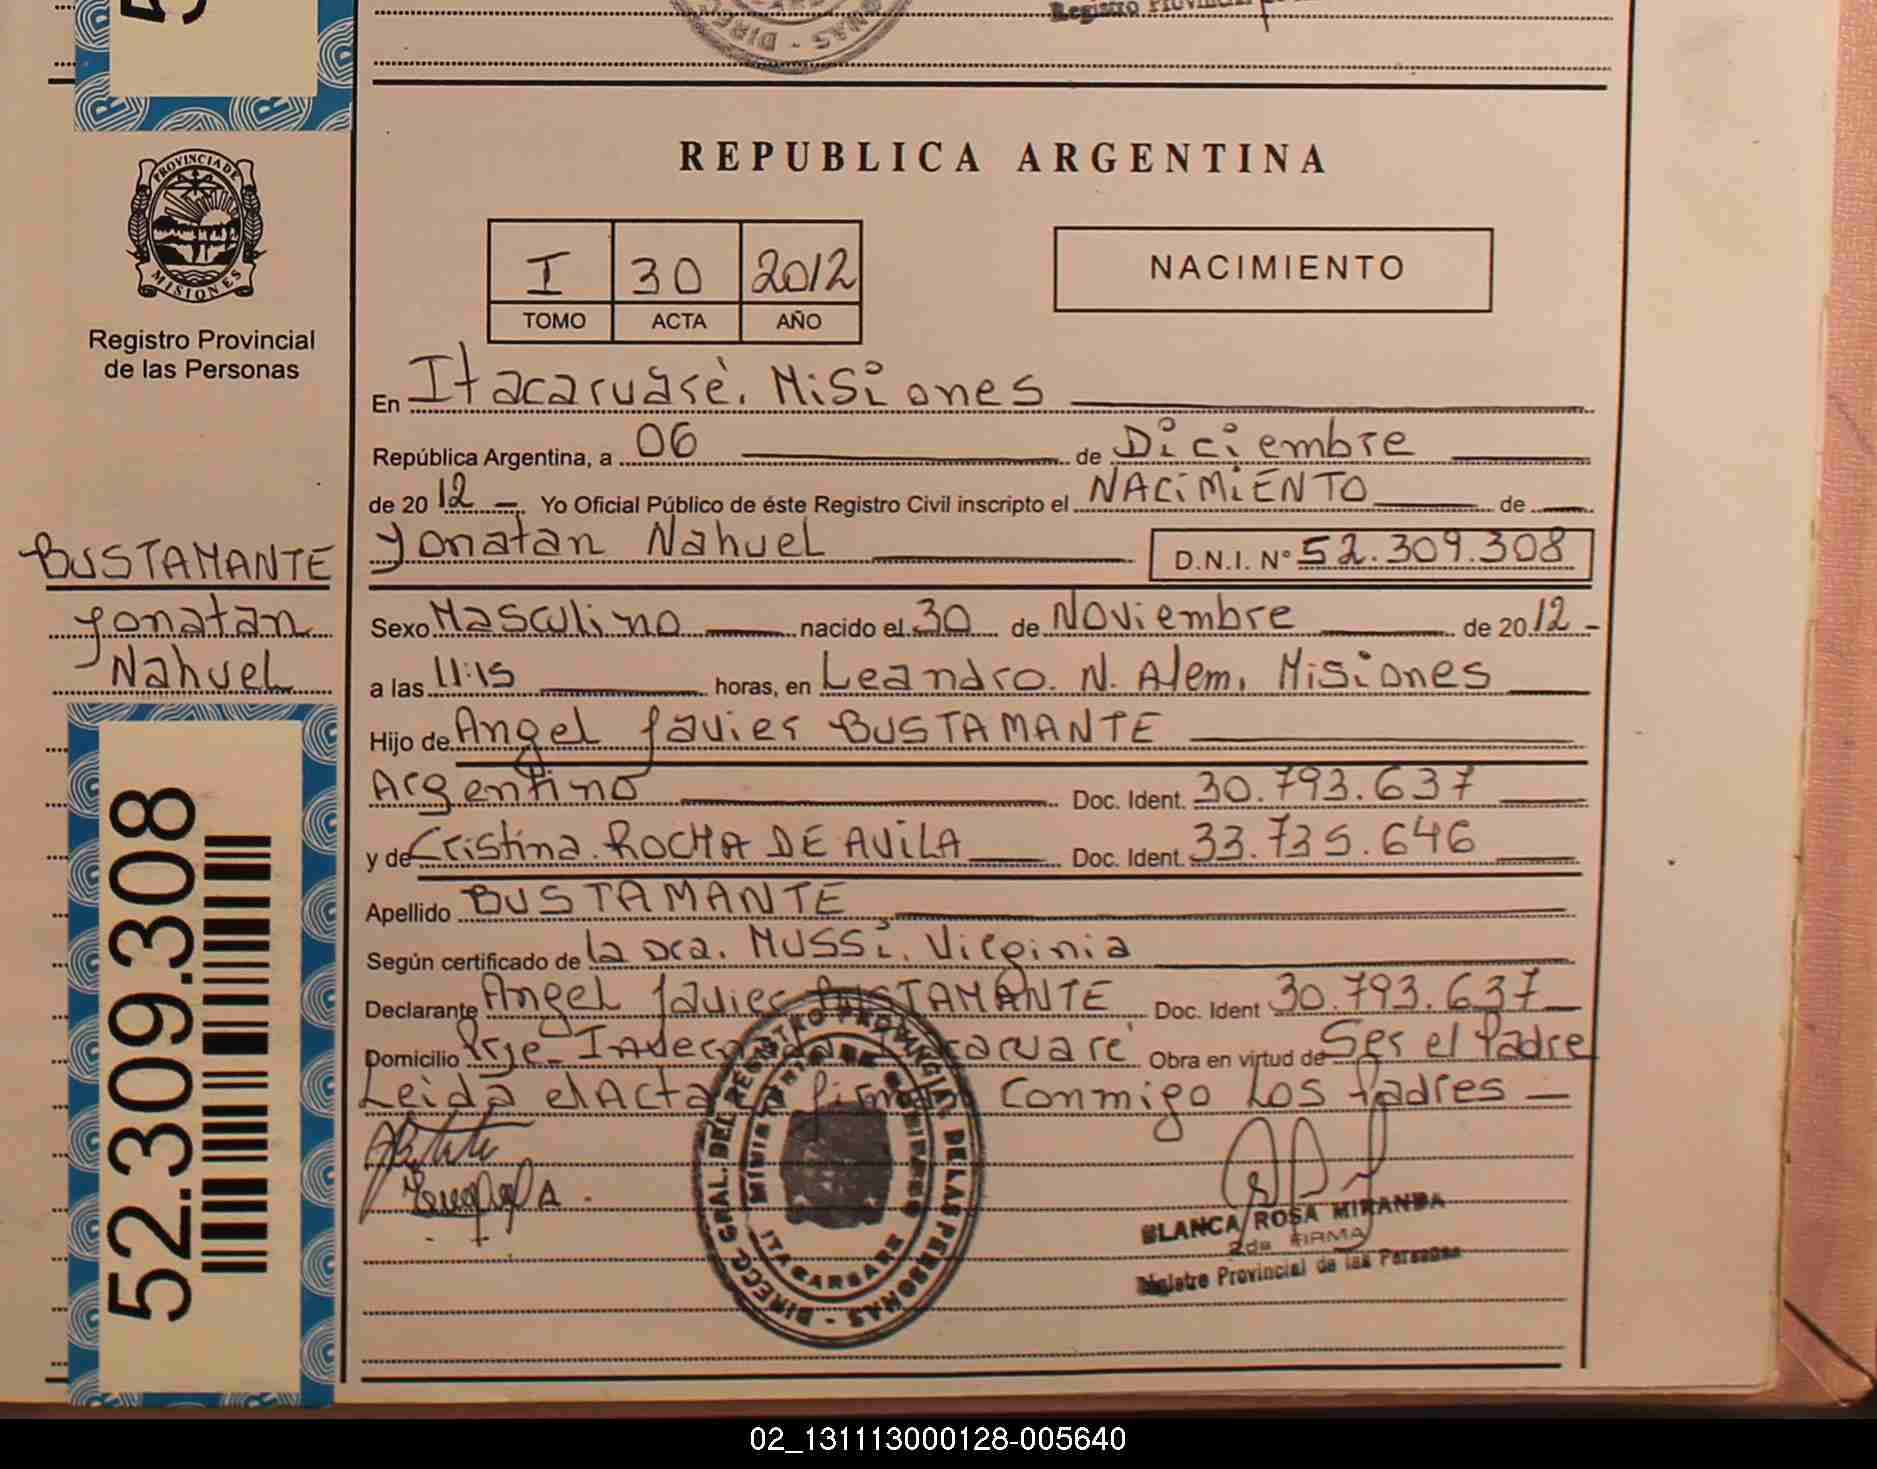 REPUBLICA ARGENTINA
PROVINCIA DE MISIONES
Registro Provincial
de las Personas
I 30 2012
TOMO ACTA AÑO
NACIMIENTO
En Itacaruaré. Misiones
República Argentina, a 06 de Diciembre
de 2012 Yo Oficial Público de éste Registro Civil inscripto el NACIMIENTO de
Yonatan Nahuel D.N.I. Nº 52.309.308
BUSTAMANTE
Yonatan
Nahuel
Sexo Masculino nacido el 30 de Noviembre de 2012
a las 11:15 horas, en Leandro. N. Alem, Misiones
Hijo de Angel Javier BUSTAMANTE
Argentino Doc. Ident. 30.793.637
y de Cristina ROCHA DE AVILA Doc. Ident. 33.735.646
Apellido BUSTAMANTE
Según certificado de la Dra. MUSSi, Virginia
Declarante Angel Javier BUSTAMANTE Doc. Ident 30.793.637
Domicilio Itacaruaré Obra en virtud de Ser el Padre
Leida el Acta firman conmigo Los Padres
52.309.308
DIRECC. GRAL. DEL REGISTRO PROVINCIAL DE LAS PERSONAS
MINISTERIO DE GOBIERNO
ITACARUARE
BLANCA ROSA MIRANDA
2da FIRMA
Registro Provincial de las Personas
02_131113000128-005640